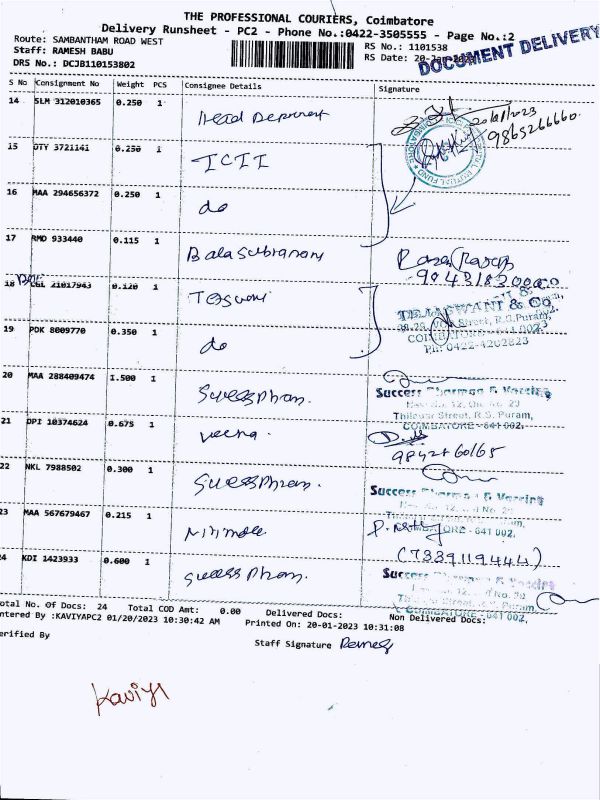 THE PROFESSIONAL COURIERS, Coimbatore
Delivery Runsheet - PC2 - Phone No.:0422-3505555 - Page No.:2
Route: SAMBANTHAM ROAD WEST
RS No.: 1101538
Staff: RAMESH BABU
RS Date: 20-Jan-2023
DOCUMENT DELIVERY
DRS No.: DCJB110153802
S No Consignment No Weight PCS Consignee Details Signature
14 SLM 312010365 0.250 1 Head Depronent
20/01/2023
9865266660
15 OTY 3721141 0.250 1 ICII
16 MAA 294656372 0.250 1 do
17 RMD 933440 0.115 1 Balasubramani
9843183000
18 CGL 21017943 0.120 1
TEJASWANI & CO.
R.S.Puram,
COIMBATORE - 641 002.
PH: 0422-4202823
19 PDK 8009770 0.350 1 do
20 MAA 288409474 1.500 1 Success Pharm.
Success Pharmaa & Vaccins
New No. 12, Old No. 20
Thiluvar Street, R.S. Puram,
COIMBATORE - 641 002.
21 DPI 10374624 0.675 1 Veena.
9842460165
22 NKL 7988502 0.300 1 Success Pharm.
Success Pharmaa & Vaccins
641 002.
23 MAA 567679467 0.215 1 Nirmala
(7339119444)
24 KDI 1423933 0.600 1 Success Pharm.
Success Pharmaa & Vaccins
COIMBATORE - 641 002.
Total No. Of Docs: 24 Total COD Amt: 0.00 Delivered Docs: Non Delivered Docs:
Entered By :KAVIYAPC2 01/20/2023 10:30:42 AM Printed On: 20-01-2023 10:31:08
Verified By
Staff Signature Ramesh
Kaviya